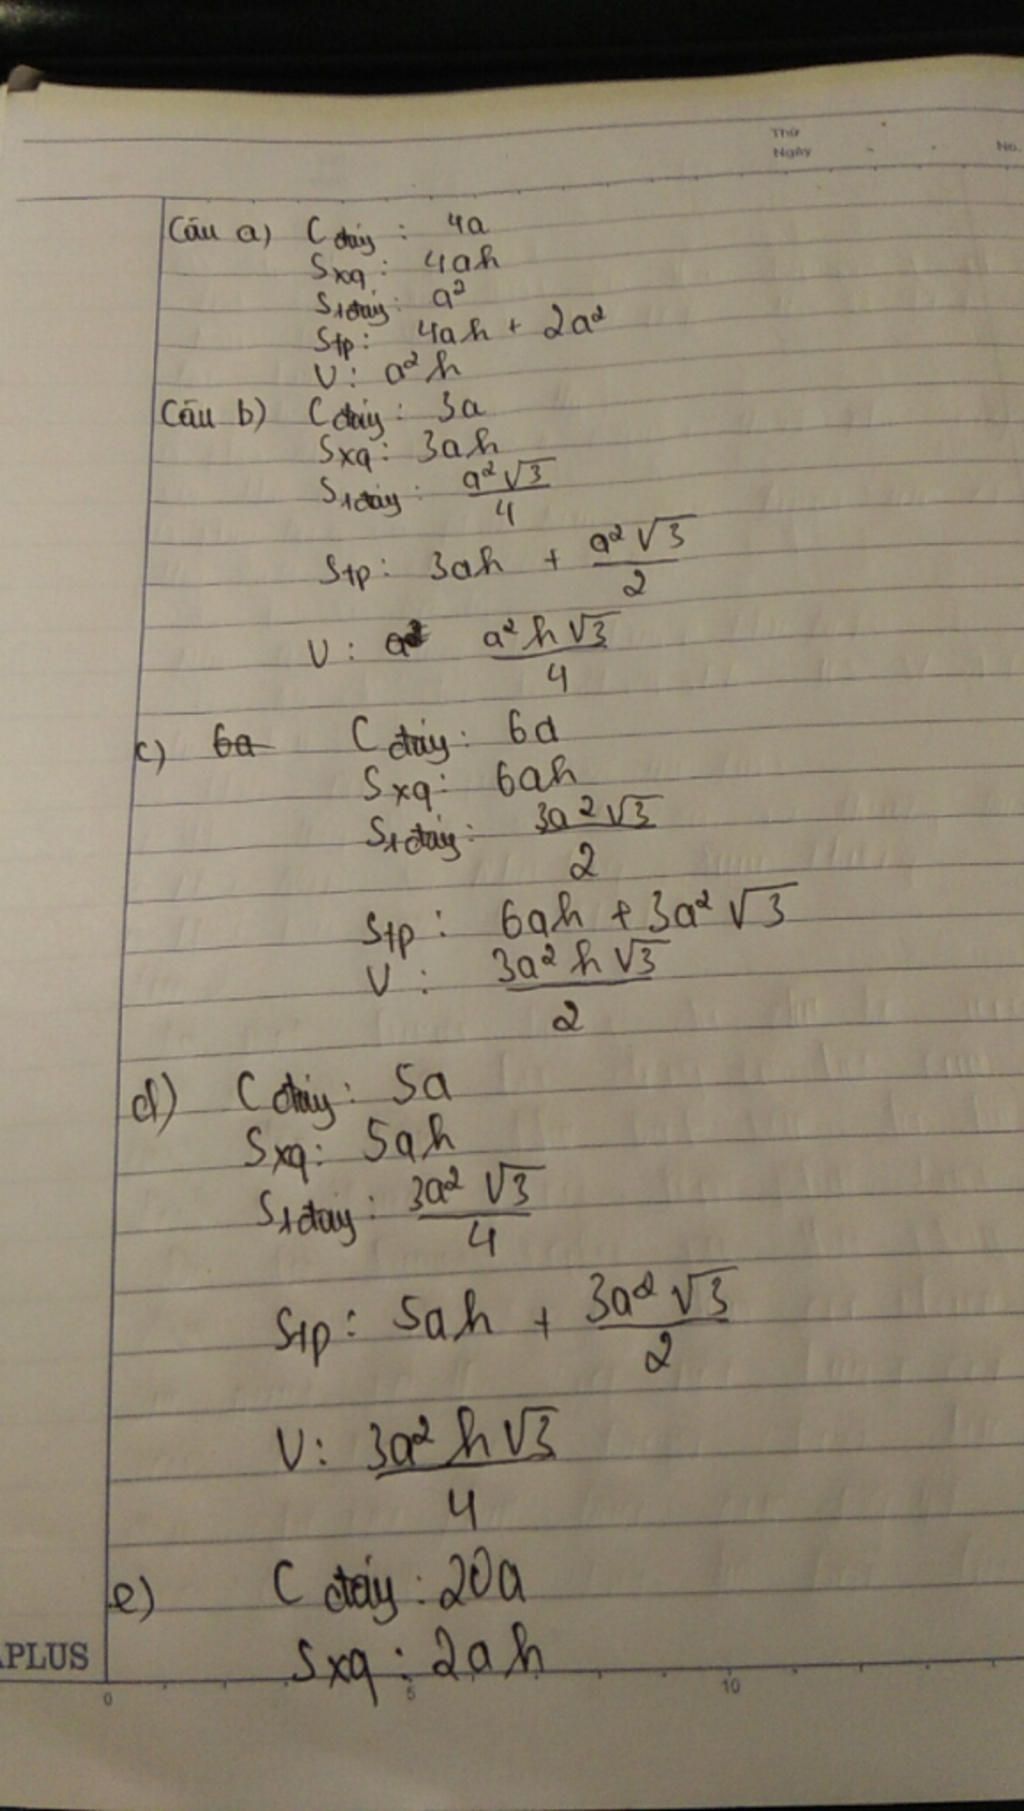 Thứ
Ngày
No.
Câu a) C đáy : 4a
Sxq : 4ah
S1đáy : a²
Stp : 4ah + 2a²
V : a²h
Câu b) C đáy : 3a
Sxq : 3ah
S1đáy : a²√3/4
Stp : 3ah + a²√3/2
V : a²h√3/4
c) C đáy : 6a
Sxq : 6ah
S1đáy : 3a²√3/2
Stp : 6ah + 3a²√3
V : 3a²h√3/2
d) C đáy : 5a
Sxq : 5ah
S1đáy : 3a²√3/4
Stp : 5ah + 3a²√3/2
V : 3a²h√3/4
e) C đáy : 20a
Sxq : 2ah
APLUS
0 5 10